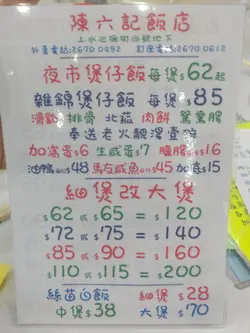 陳六記飯店
外賣電話:2670 0492 訂座電話:2670 0612
夜市煲仔飯每煲$62起
雜錦煲仔飯 每煲$85
滑雞 排骨 北菇 肉餅 鴛鴦腸
奉送老火靚湯壹碗
加窩蛋$6 生咸蛋$7 臘腸$16
油鴨$48 馬友咸魚$45 加底$15
細煲改大煲
$62 或 $65 = $120
$72 或 $75 = $140
$85 或 $90 = $160
$110 或 $115 = $200
絲苗白飯 細煲 $28
中煲$38 大煲 $70